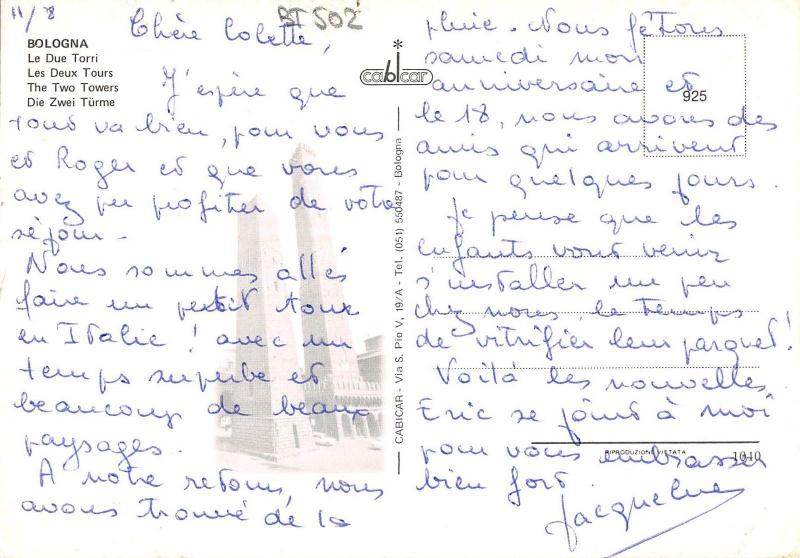 11/8
BT 502
BOLOGNA
Le Due Torri
Les Deux Tours
The Two Towers
Die Zwei Türme
Chère Colette,
J'espère que
tout va bien, pour vous
et Roger et que vous
avez pu profiter de votre
séjour.
Nous sommes allés
faire un petit tour
en Italie ! avec un
temps superbe et
beaucoup de beaux
paysages.
A notre retour, nous
avons trouvé de la
cabicar
CABICAR - Via S. Pio V, 19/A - Tel. (051) 550487 - Bologna
925
pluie. Nous fêtons
samedi mon
anniversaire et
le 18, nous avons des
amis qui arrivent
pour quelques jours.
Je pense que les
enfants vont venir
s'installer un peu
chez nous, le temps
de vitrifier leur parquet!
Voilà les nouvelles
Eric se joint à moi
pour vous embrasser
bien fort.
Jacqueline
RIPRODUZIONE VIETATA
1040